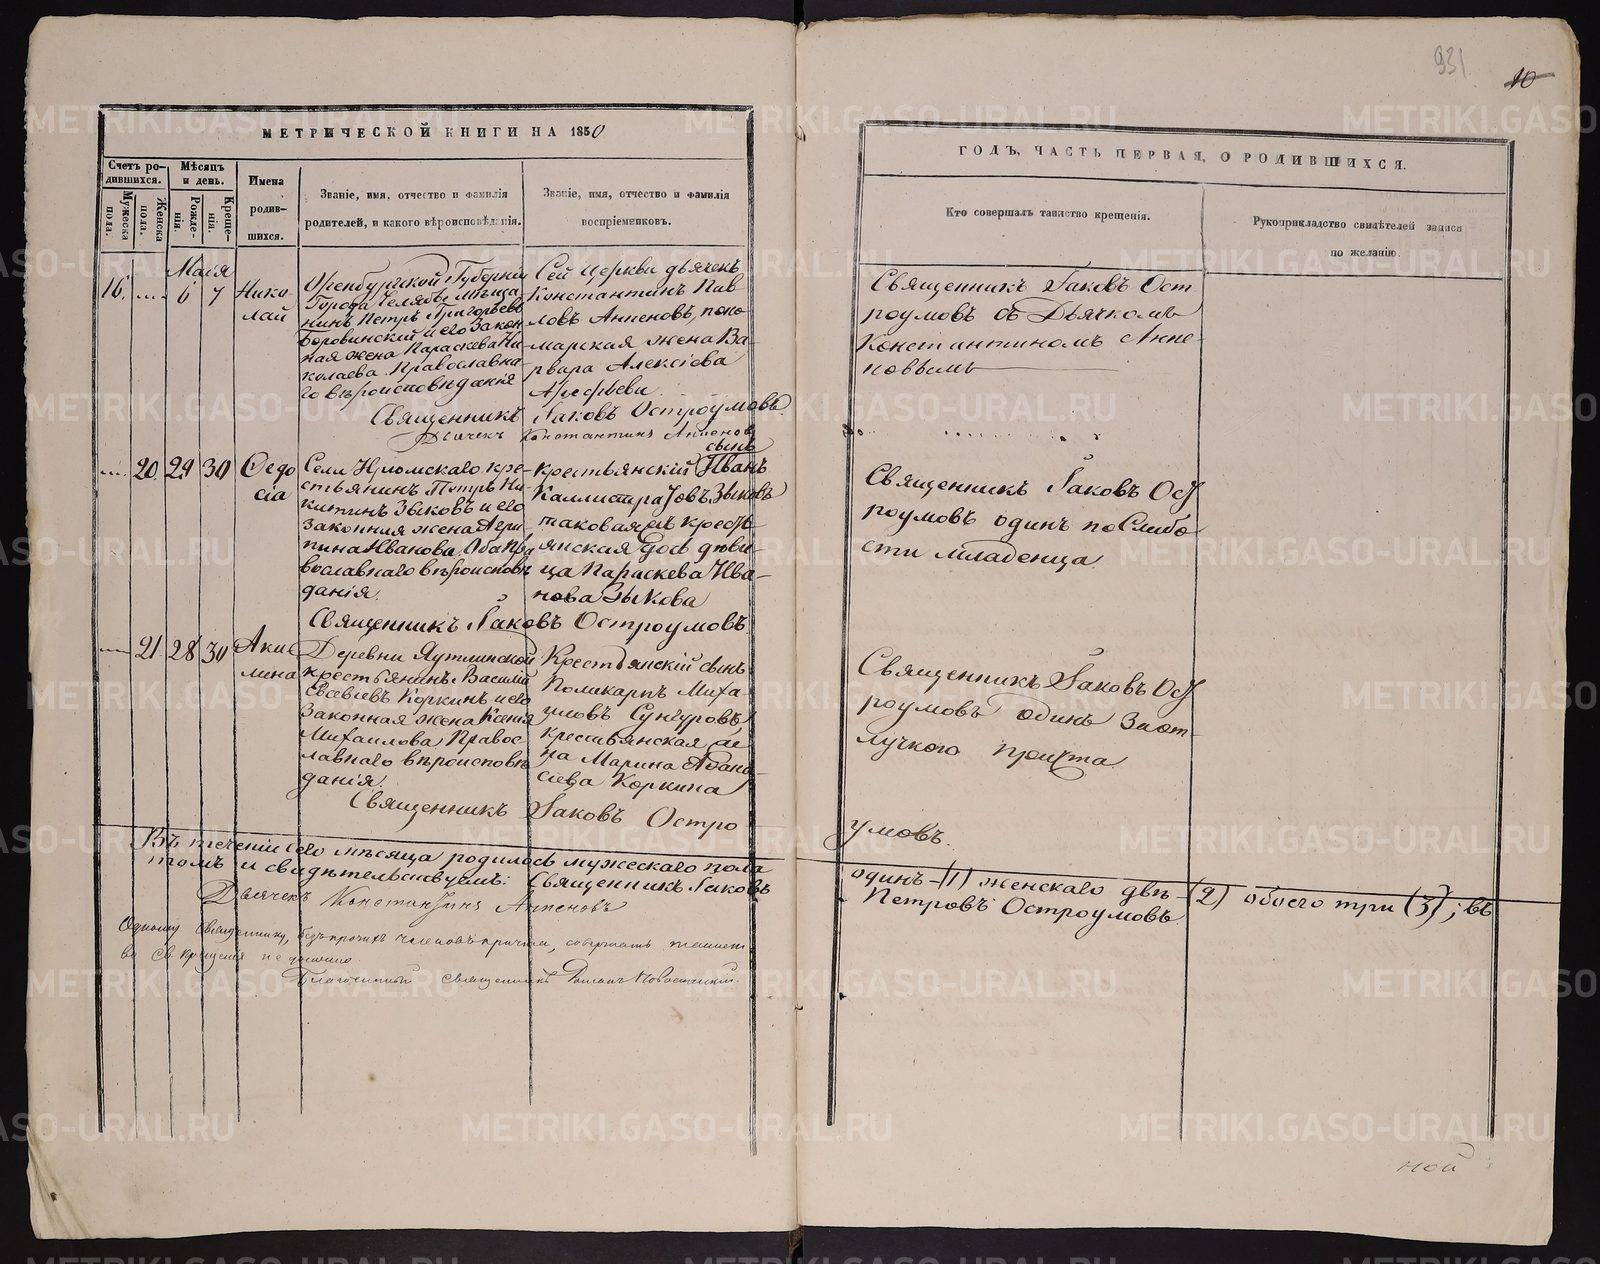 931
10
МЕТРИЧЕСКОЙ КНИГИ НА 1850
ГОДЪ, ЧАСТЬ ПЕРВАЯ, О РОДИВШИХСЯ.
Счетъ ро-
дившихся.
Мужеска
пола.
Женска
пола.
Мѣсяцъ
и день.
Рожде-
нія.
Креще-
нія.
Имена
родив-
шихся.
Званіе, имя, отчество и фамилія
родителей, и какого вѣроисповѣданія.
Званіе, имя, отчество и фамилія
воспріемниковъ.
Кто совершалъ таинство крещенія.
Рукоприкладство свидѣтелей записи
по желанію.
Маія
16. 6 7
Нико
лай
Оренбургской Губерніи
Города Челябы мѣща
нинъ Петръ Григорьевъ
Боровинскій и его Закон
ная жена Параскева Ни
колаева Православна
го вѣроисповѣданія
Сей церкви дьячекъ
Константинъ Пав
ловъ Анпеновъ, поно
марская жена Ва
рвара Алексіева
Арефьева
Священникъ Іаковъ Остроумовъ
Дьячекъ Константинъ Анпеновъ
Священникъ Іаковъ Ост
роумовъ съ Дьячкомъ
Константиномъ Анпе
новымъ
20 29 30
Ѳедо
сія
Села крe-
стьянинъ Петръ Ни-
китинъ Зыковъ и его
законная жена Агри
пина Иванова, Оба Пра
вославнаго вѣроисповѣ
данія.
крестьянскій сынъ Иванъ
Каллистратовъ Зыковъ
таковая
янская дочь дѣви-
ца Параскева Ива-
нова Зыкова
Священникъ Іаковъ Остроумовъ
Священникъ Іаковъ Ост
роумовъ одинъ по Слабо
сти младенца
21 28 30
Аки
лина
Деревни
крестьянинъ Василій
Евсевіевъ Коркинъ и его
Законная жена Ксенія
Михаилова Правос
лавнаго вѣроисповѣ
данія
Крестьянскій сынъ
Поликарпъ Миха
иловъ Сунгуровъ
крестьянская же
на Марина Аѳана
сіева Коркина
Священникъ Іаковъ Остро
умовъ.
Священникъ Іаковъ Ост
роумовъ одинъ за от
лучкою причта
Въ теченіи сего мѣсяца родилось мужескаго пола
одинъ (1) женскаго двѣ (2) обоего три (3); въ
томъ и свидѣтельствуемъ: Священникъ Іаковъ
Петровъ Остроумовъ
Дьячекъ Константинъ Анпеновъ
Одному Священнику, безъ прочихъ членовъ причта, совершать таинст
во Св. крещенія не должно
Благочинный Священникъ
ной